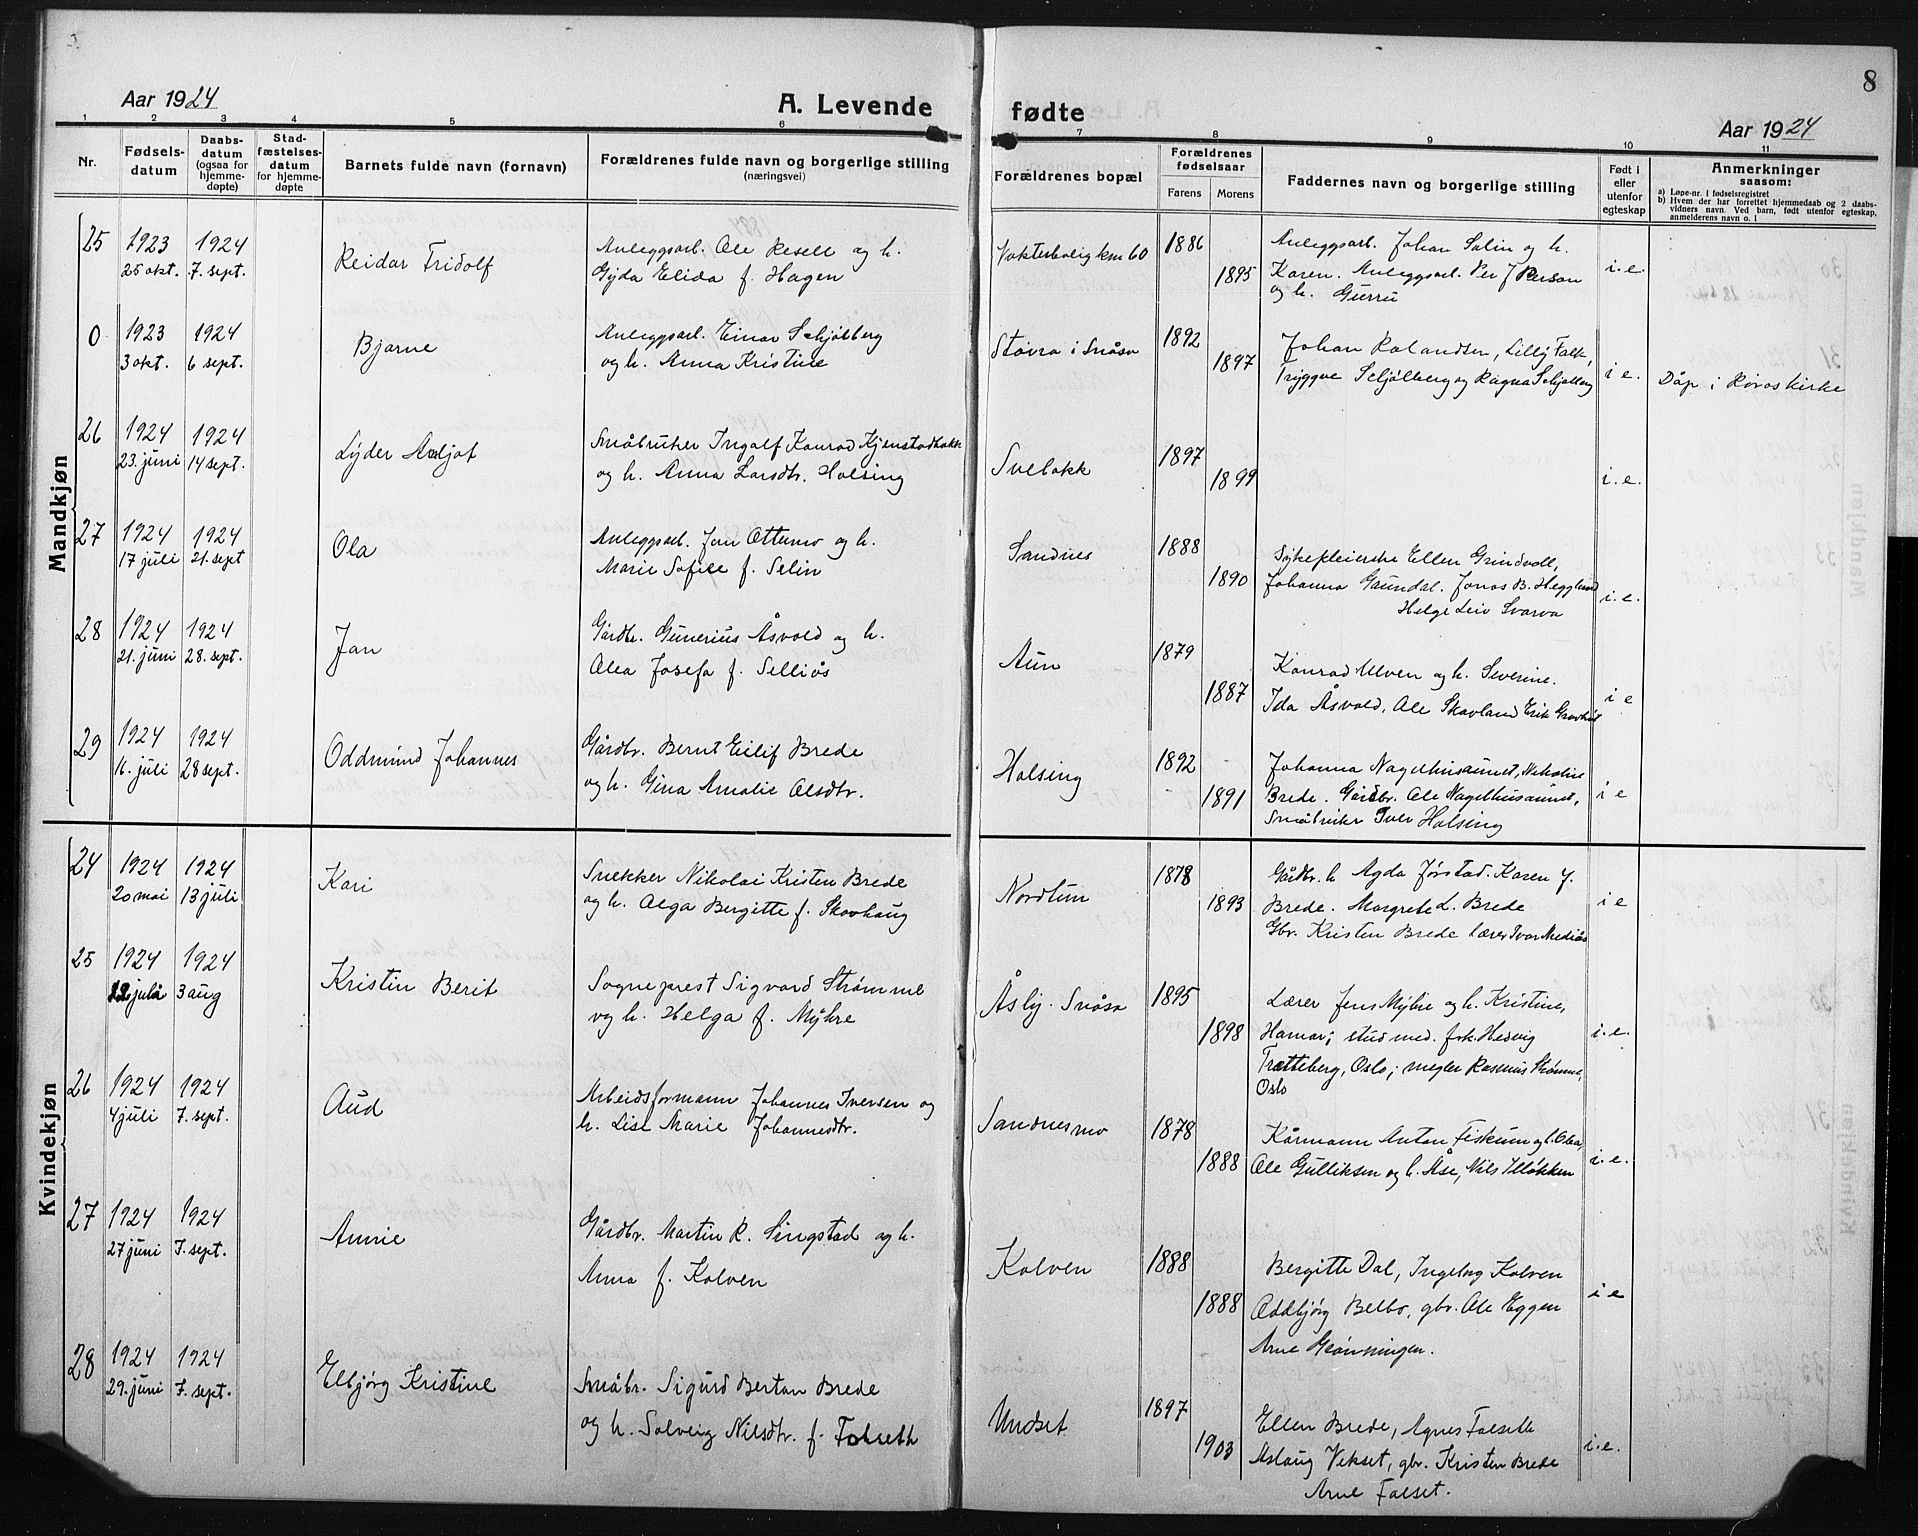 Aar 1924
A. Levende
1 2 3 4 5 6
Nr.
Fødsels-
datum
Daabs-
datum
(ogsaa for
hjemme-
døpte)
Stad-
fæstelses-
datum
for hjemme-
døpte
Barnets fulde navn (fornavn)
Forældrenes fulde navn og borgerlige stilling
(næringsvei)
8
fødte
Aar 1924
7 8 9 10 11
Forældrenes bopæl
Forældrenes
fødselsaar
Farens Morens
Faddernes navn og borgerlige stilling
Født i
eller
utenfor
egteskap
Anmerkninger
saasom:
a) Løpe-nr. i fødselsregistret
b) Hvem der har forrettet hjemmedaab og 2 daabs-
vidners navn. Ved barn, født utenfor egteskap,
anmelderens navn o. l.
Mandkjøn
25
1923
25 okt.
1924
7. sept.
Reidar Fridolf
Anleggsarb. Ole Resell og h.
Gyda Elida f. Hagen
Vokterbolig km 60
1886
1895
Anleggsarb. Johan Solin og h.
Karen. Anleggsarb. Per J Person
og h. Gurru
i. e.
0
1923
3 okt.
1924
6 sept.
Bjarne
Anleggsarb. Einar Schjølberg
og h. Anna Kristine
Støvra i Snåsa
1892
1897
Johan Rolandsen, Lilly Falk,
Tryggve Schjølberg og Ragna Schjølberg
i e.
Dåp i Røros kirke
26
1924
23. juni
1924
14 sept.
Lyder Asljot
Småbruker Ingolf Konrad Kjenstadbakk
og h. Anna Larsdtr. Holsing
Svebakk
1897
1899
i. e.
27
1924
17 juli
1924
21. sept
Ola
Anleggsarb. Jon Ottermo og h.
Marie Sofie f. Selin
Sandnes
1888
1890
Sykepleierske Ellen Grindvoll,
Johanna Gaundal. Jonas B. Heggland
Helge Leiv Svarva
i. e.
28
1924
21. juni
1924
28. sept.
Jan
Gårdbr. Gunerius Åsvold og h.
Olea Josefa f. Selliås
Aun
1879
1887
Konrad Ulven og h. Severine.
Ida Åsvold, Ole Skavland Erik
i e
29
1924
16. juli
1924
28 sept.
Oddmund Johannes
Gårdbr. Bernt Eilif Brede
og h. Gina Amalie Olsdtr.
Holsing
1892
1891
Johanna Nagelhusaunet, Nikoline
Brede. Gårdbr. Ole Nagelhusaunet,
Småbruker Iver Holsing
i e
Kvindekjøn
24
1924
20 mai
1924
13 juli
Kari
Snekker Nikolai Kristen Brede
og h. Olga Bergitte f. Skavhaug
Nordtun
1878
1893
Gårdbr. h Agda Jørstad. Karen J.
Brede. Margrete L. Brede
Gbr. Kristen Brede lærer Ivar Mediås
i e
25
1924
12 juli
1924
3 aug
Kristin Berit
Sogneprest Sigvard Strømme
og h. Helga f. Myhre
Åsby - Snåsa
1895
1898
Lærer Jens Myhre og h. Kristine,
Hamar; stud med. frk. Hedvig
Trætteberg, Oslo; megler Rasmus Strømme,
Oslo
i. e.
26
1924
4 juli
1924
7. sept.
Aud
Arbeidsformann Johannes Iversen og
h. Lise Marie Johannesdtr.
Sandnesmo
1878
1888
Kårmann Anton Fiskum og h. Olea,
Ole Gulliksen og h. Åse, Nils Illøkken
i. e.
27
1924
27 juni
1924
7. sept.
Annie
Gårdbr. Martin R. Singstad og h.
Anna f. Kolven
Kolven
1888
1888
Bergitte Dal, Ingeborg Kolven
Oddbjørg Belbo, gbr. Ole Eggen
Arne Grønningen.
i e
28
1924
29. juni
1924
7. sept.
Elbjørg Kristine
Småbr. Sigurd Bertan Brede
og h. Solveig Nilsdtr. f. Folseth
Undset
1897
1903
Ellen Brede, Agnes Folseth
Aslaug Vekset, gbr. Kristen Brede
Arne Folset.
i. e.